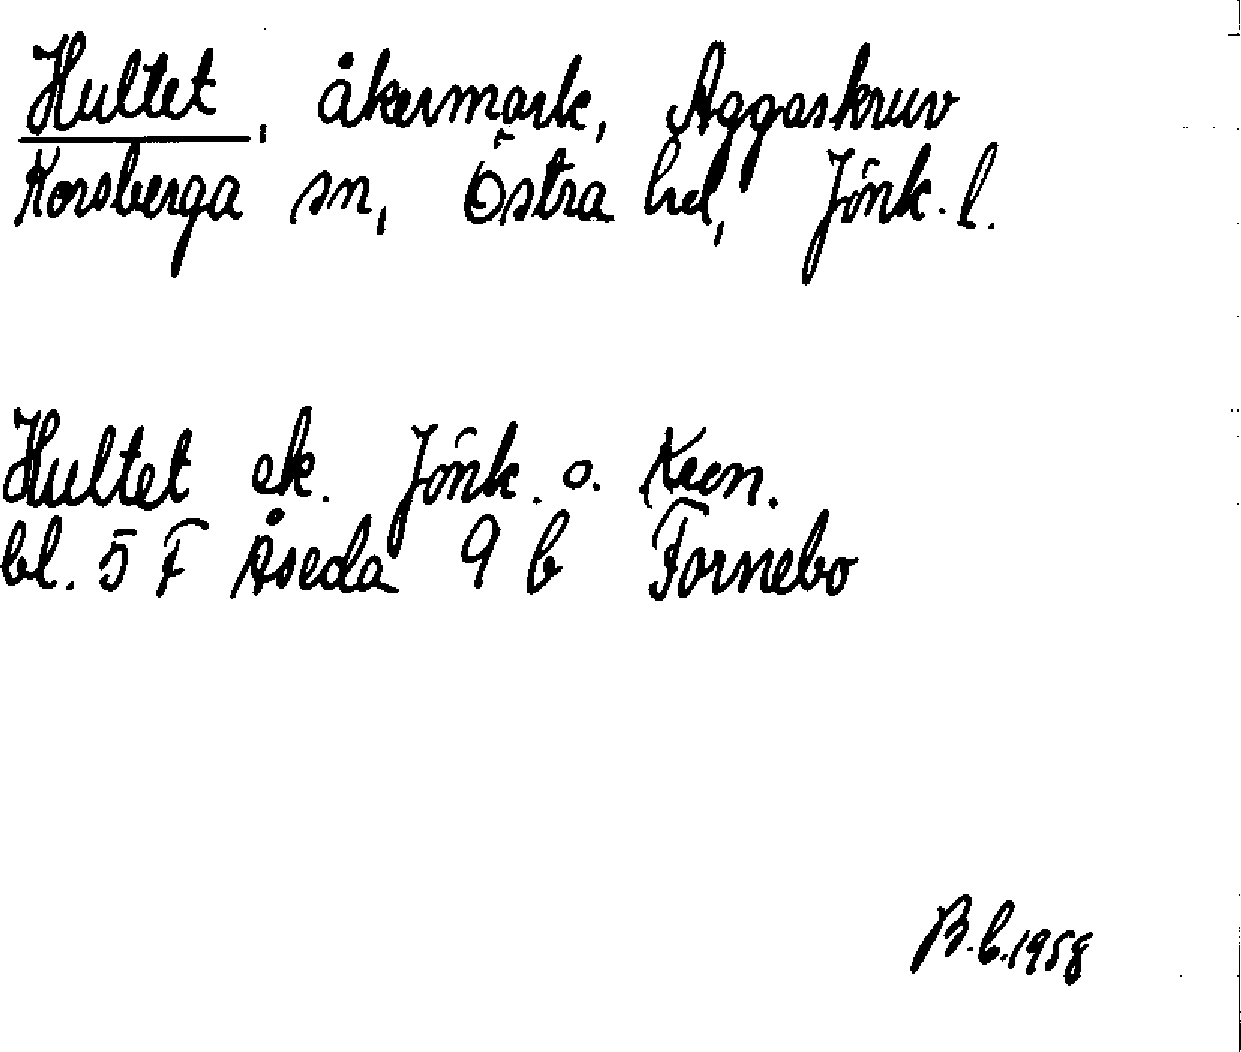 Hultet, åkermark, Aggaskruv
Korsberga sn, Östra hd, Jönk. l.
Hultet ek. Jönk. o. Kron.
bl. 5 F Åseda 9 b Fornebo
B.b.1958